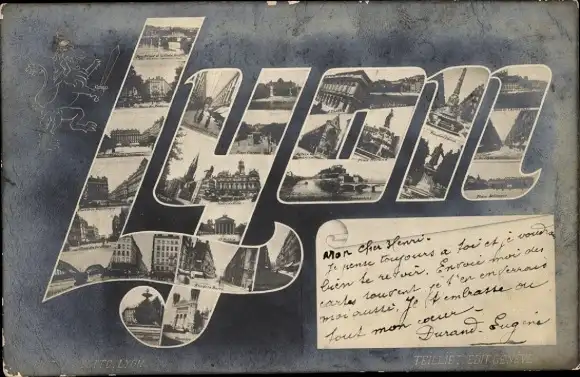 Lyon
Mon cher Henri.
Je pense toujours a toi et je voudra
bien te revoir. Envoie moi des
cartes souvent je t'en enverrais
moi aussi. Je t'embrasse de
tout mon cœur
Durand Eugène
LYON.
EDIT. GENÈVE